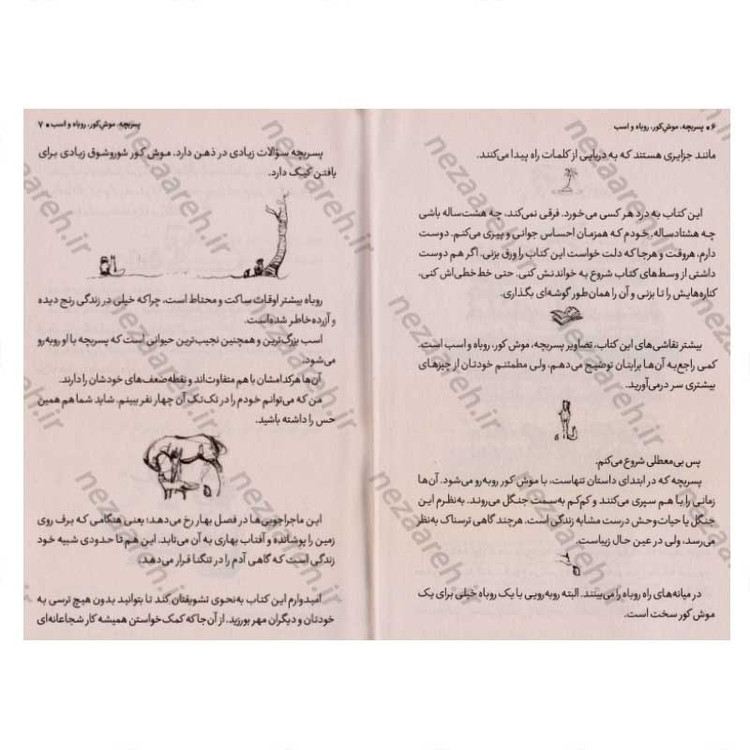 ۶ • پسربچه، موش‌کور، روباه و اسب
مانند جزایری هستند که به دریایی از کلمات راه پیدا می‌کنند.
این کتاب به درد هر کسی می‌خورد. فرقی نمی‌کند، چه هشت‌ساله باشی
چه هشتادساله. خودم که همزمان احساس جوانی و پیری می‌کنم. دوست
دارم، هروقت و هرجا که دلت خواست این کتاب را ورق بزنی. اگر هم دوست
داشتی از وسط‌های کتاب شروع به خواندنش کنی. حتی خط‌خطی‌اش کنی،
کناره‌هایش را تا بزنی و آن را همان‌طور گوشه‌ای بگذاری.
بیشتر نقاشی‌های این کتاب، تصاویر پسربچه، موش کور، روباه و اسب است.
کمی راجع‌به آن‌ها برایتان توضیح می‌دهم، ولی مطمئنم خودتان از چیزهای
بیشتری سر درمی‌آورید.
پس بی‌معطلی شروع می‌کنم.
پسربچه که در ابتدای داستان تنهاست، با موش کور روبه‌رو می‌شود. آن‌ها
زمانی را با هم سپری می‌کنند و کم‌کم به‌سمت جنگل می‌روند. به‌نظرم این
جنگل یا حیات‌وحش درست مشابه زندگی است. هرچند گاهی ترسناک به‌نظر
می‌رسد، ولی در عین حال زیباست.
در میانه‌های راه روباه را می‌بینند. البته روبه‌رویی با یک روباه خیلی برای یک
موش کور سخت است.
پسربچه، موش‌کور، روباه و اسب • ۷
پسربچه سؤالات زیادی در ذهن دارد. موش کور شوروشوق زیادی برای
یافتن کیک دارد.
روباه بیشتر اوقات ساکت و محتاط است، چراکه خیلی در زندگی رنج دیده
و آزرده‌خاطر شده‌است.
اسب بزرگ‌ترین و همچنین نجیب‌ترین حیوانی است که پسربچه با او روبه‌رو
می‌شود.
آن‌ها هرکدامشان با هم متفاوت‌اند و نقطه‌ضعف‌های خودشان را دارند.
من که می‌توانم خودم را در تک‌تک آن چهار نفر ببینم. شاید شما هم همین
حس را داشته باشید.
این ماجراجویی‌ها در فصل بهار رخ می‌دهد؛ یعنی هنگامی که برف روی
زمین را پوشانده و آفتاب بهاری به آن می‌تابد. این هم تا حدودی شبیه خود
زندگی است که گاهی آدم را در تنگنا قرار می‌دهد.
امیدوارم این کتاب به‌نحوی تشویقتان کند تا بتوانید بدون هیچ ترسی به
خودتان و دیگران مهر بورزید. از آن‌جا که کمک خواستن همیشه کار شجاعانه‌ای
nezaareh.ir
nezaareh.ir
nezaareh.ir
nezaareh.ir
nezaareh.ir
nezaareh.ir
nezaareh.ir
nezaareh.ir